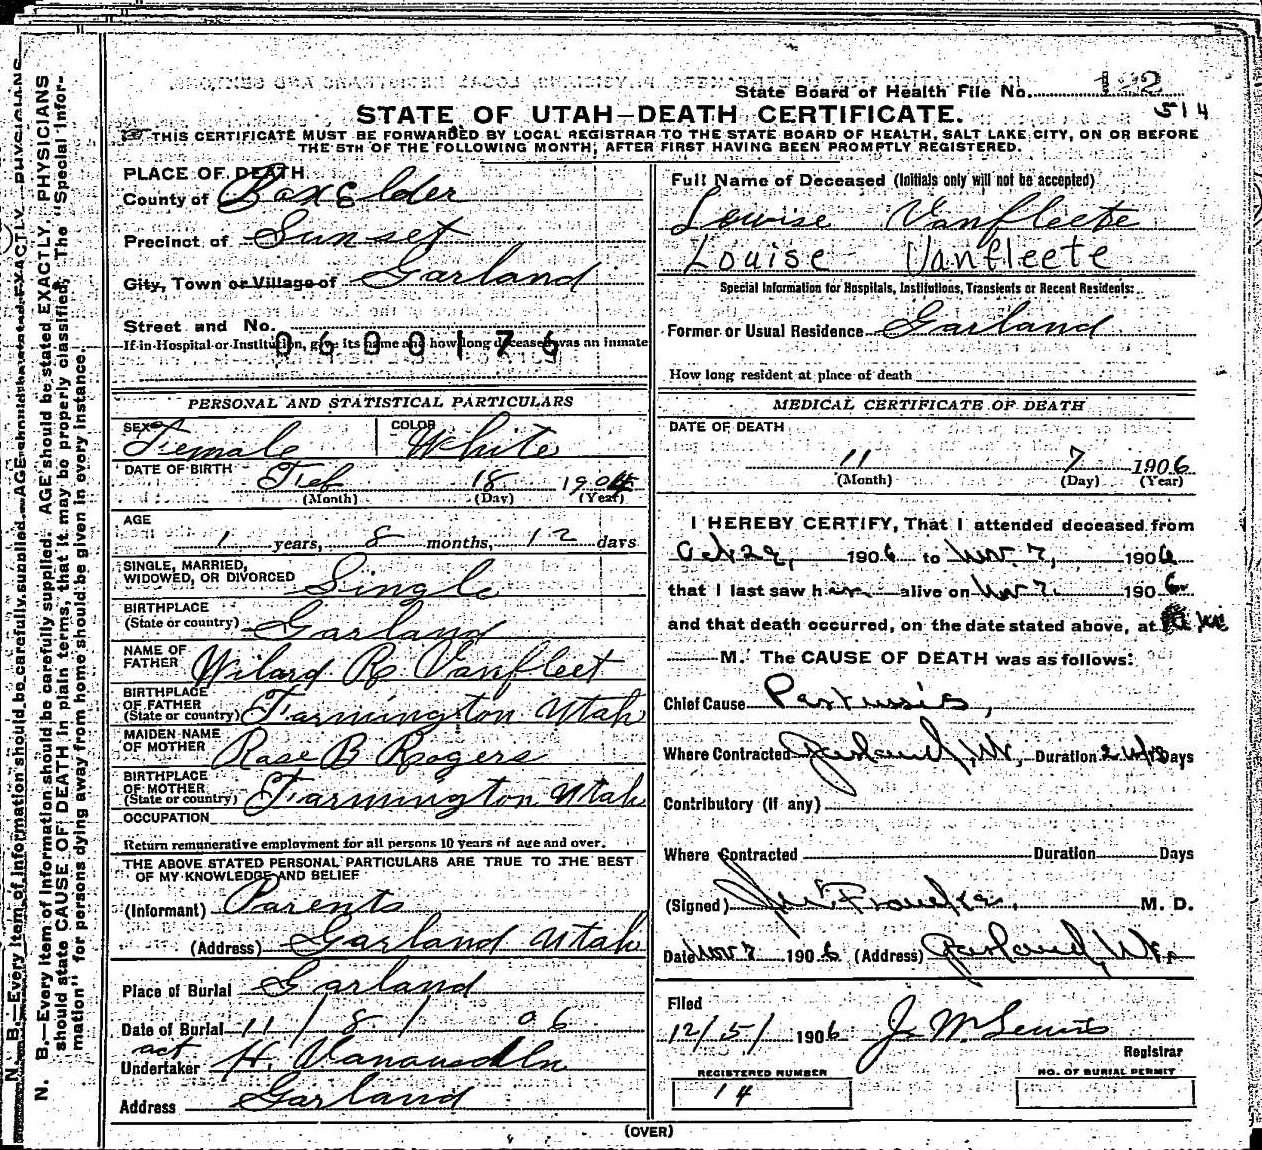 State Board of Health File No. 122
514
STATE OF UTAH—DEATH CERTIFICATE.
THIS CERTIFICATE MUST BE FORWARDED BY LOCAL REGISTRAR TO THE STATE BOARD OF HEALTH, SALT LAKE CITY, ON OR BEFORE
THE 5TH OF THE FOLLOWING MONTH, AFTER FIRST HAVING BEEN PROMPTLY REGISTERED.
PLACE OF DEATH
County of Box Elder
Precinct of Sunset
City, Town or Village of Garland
Street and No.
If in Hospital or Institution, give its name and how long deceased was an inmate
0600176
PERSONAL AND STATISTICAL PARTICULARS
SEX Female COLOR White
DATE OF BIRTH Feb 18 1904
(Month) (Day) (Year)
AGE
1 years, 8 months, 12 days
SINGLE, MARRIED,
WIDOWED, OR DIVORCED Single
BIRTHPLACE
(State or country) Garland
NAME OF
FATHER Wilard R Vanfleet
BIRTHPLACE
OF FATHER
(State or country) Farmington Utah
MAIDEN NAME
OF MOTHER Rose B Rogers
BIRTHPLACE
OF MOTHER
(State or country) Farmington Utah
OCCUPATION
Return remunerative employment for all persons 10 years of age and over.
THE ABOVE STATED PERSONAL PARTICULARS ARE TRUE TO THE BEST
OF MY KNOWLEDGE AND BELIEF
(Informant) Parents
(Address) Garland Utah
Place of Burial Garland
Date of Burial 11 / 8 / 06
act
Undertaker H.
Address Garland
Full Name of Deceased (Initials only will not be accepted)
Louise Vanfleete
Louise Vanfleete
Special Information for Hospitals, Institutions, Transients or Recent Residents:
Former or Usual Residence Garland
How long resident at place of death
MEDICAL CERTIFICATE OF DEATH
DATE OF DEATH
11 7 1906
(Month) (Day) (Year)
I HEREBY CERTIFY, That I attended deceased from
Oct 29, 1906 to Nov. 7, 1906
that I last saw h alive on Nov 7. 1906
and that death occurred, on the date stated above, at
M. The CAUSE OF DEATH was as follows:
Chief Cause Pertussis,
Where Contracted Garland, Ut., Duration 2 wks Days
Contributory (if any)
Where Contracted Duration Days
(Signed) M. D.
Date Nov 7 1906 (Address) Garland, Ut.
Filed
12/5/ 1906 J. M.
Registrar
REGISTERED NUMBER
14
NO. OF BURIAL PERMIT
(OVER)
N. B.—Every item of information should be carefully supplied. AGE should be stated EXACTLY. PHYSICIANS
should state CAUSE OF DEATH in plain terms, that it may be properly classified. The "Special Infor-
mation" for persons dying away from home should be given in every instance.
N. B.—Every item of information should be carefully supplied. AGE should be stated EXACTLY. PHYSICIANS